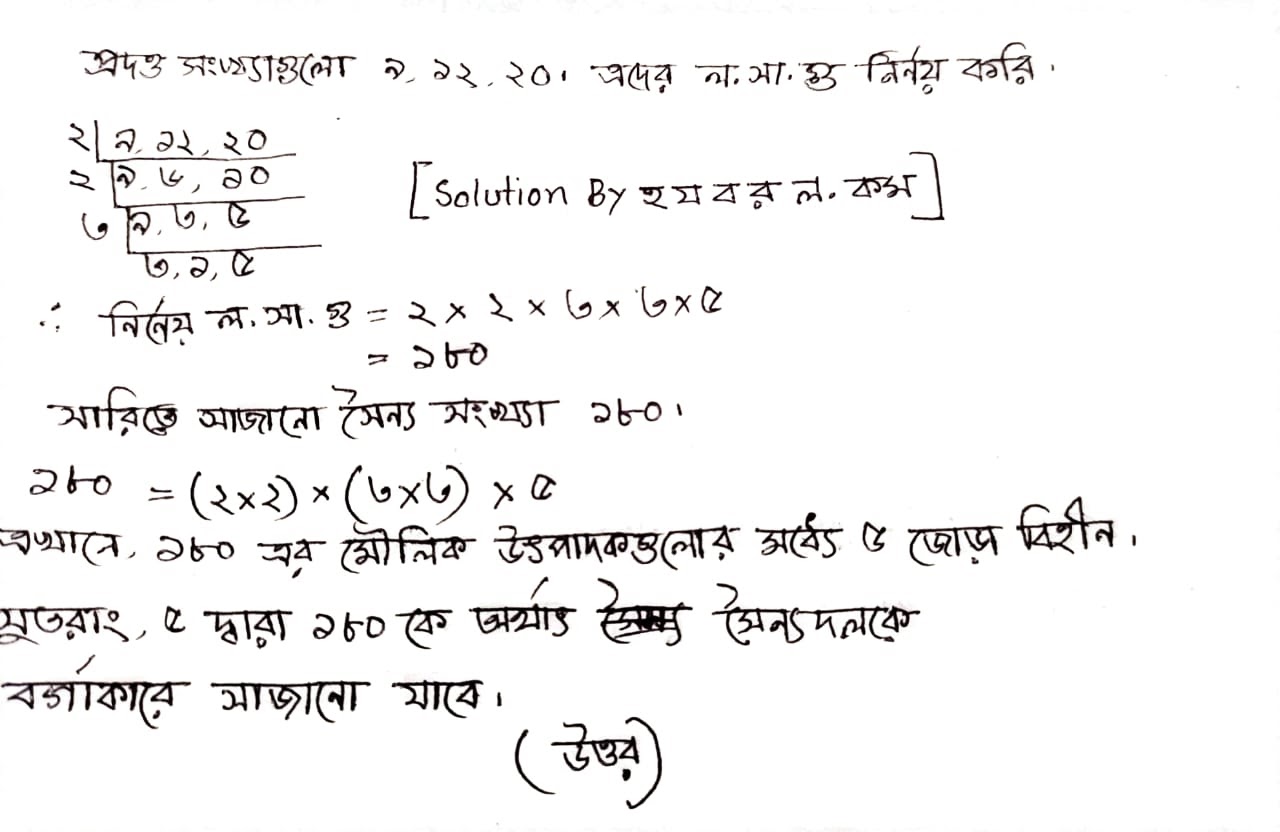 প্রদত্ত সংখ্যাগুলো ৯, ১২, ২০। এদের ল.সা.গু নির্নয় করি।
২| ৯, ১২, ২০
২ |৯, ৬, ১০
৩ |৯, ৩, ৫
৩, ১, ৫
[Solution By হ য ব র ল. কম]
∴ নির্নেয় ল.সা.গু = ২ × ২ × ৩ × ৩ × ৫
= ১৮০
সারিতে সাজানো সৈন্য সংখ্যা ১৮০।
১৮০ = (২×২) × (৩×৩) × ৫
এখানে, ১৮০ এর মৌলিক উৎপাদকগুলোর মধ্যে ৫ জোড় বিহীন।
সুতরাং, ৫ দ্বারা ১৮০ কে অর্থাৎ সৈন্যদলকে
বর্গাকারে সাজানো যাবে।
(উত্তর)